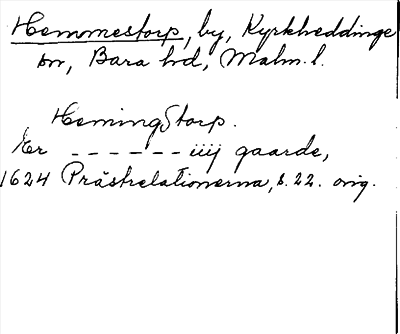 Hemmestorp, by, Kyrkheddinge
sn, Bara hd, Malm. l.
HemingStorp.
Er ------ iiij gaarde,
1624 Prästrelationerna, s. 22. orig.